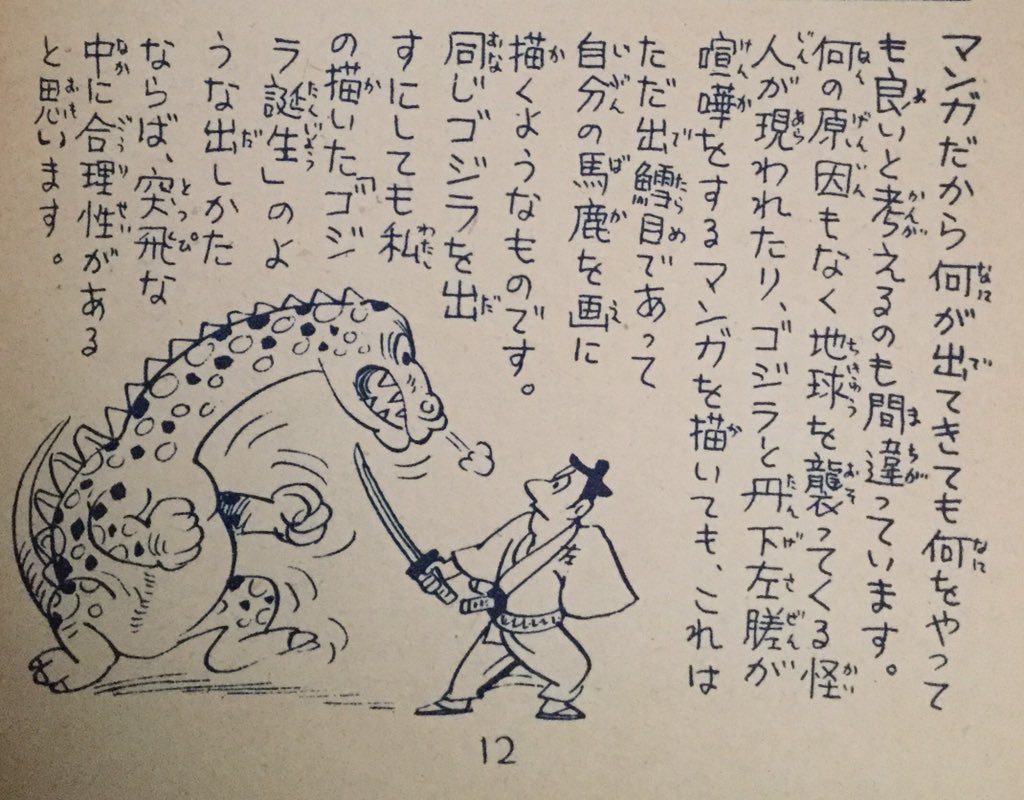 マンガだから何が出てきても何をやって
も良いと考えるのも間違っています。
何の原因もなく地球を襲ってくる怪
人が現われたり、ゴジラと丹下左膳が
喧嘩をするマンガを描いても、これは
ただ出鱈目であって
自分の馬鹿を画に
描くようなものです。
同じゴジラを出
すにしても私
の描いた「ゴジ
ラ誕生」のよ
うな出しかた
ならば、突飛な
中に合理性がある
と思います。
左
12